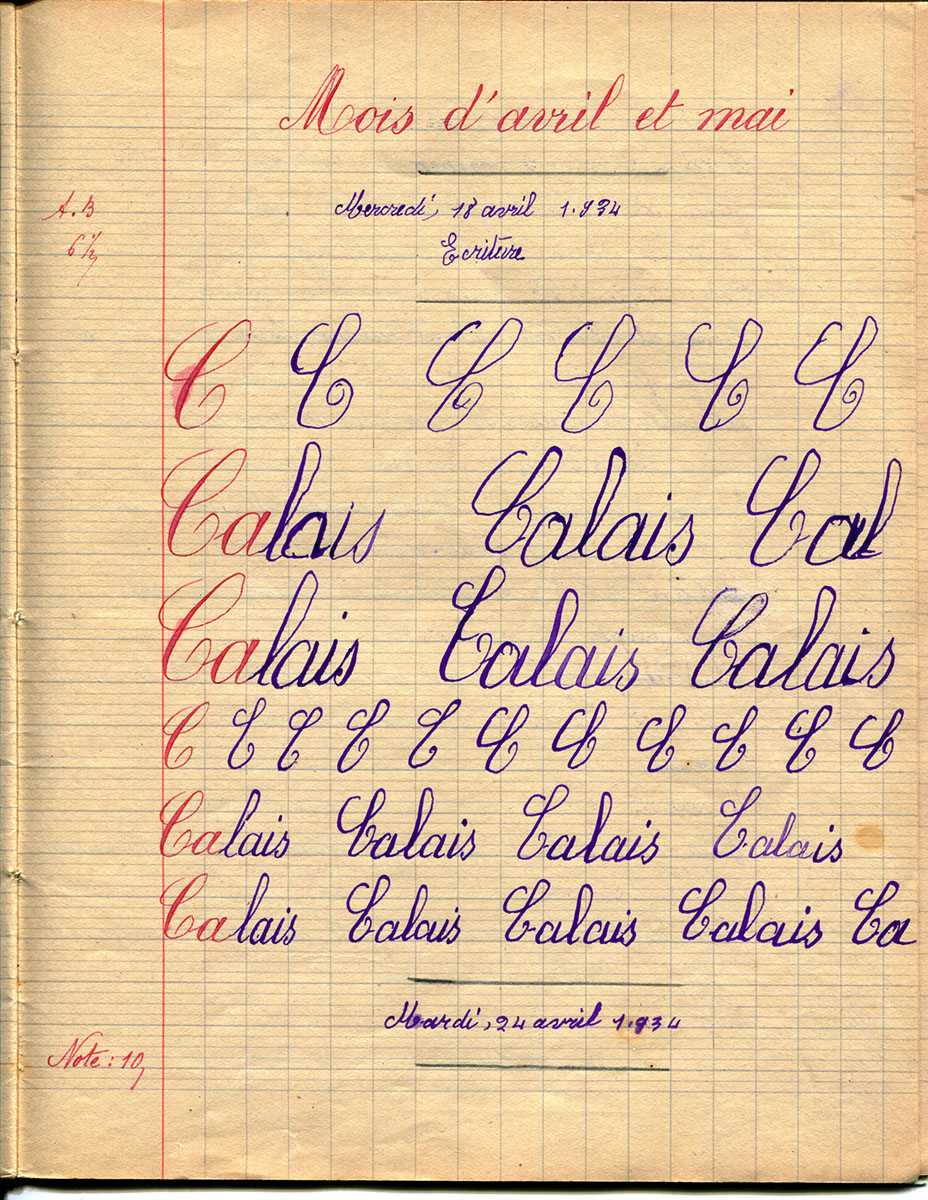 Mois d'avril et mai
A.B
Mercredi, 18 avril 1.934
6 1/2
Ecriture
C C C C C C
Calais Calais Cal
Calais Calais Calais
C C C C C C C C C C C
Calais Calais Calais Calais
Calais Calais Calais Calais Ca
Mardi, 24 avril 1.934
Note : 10